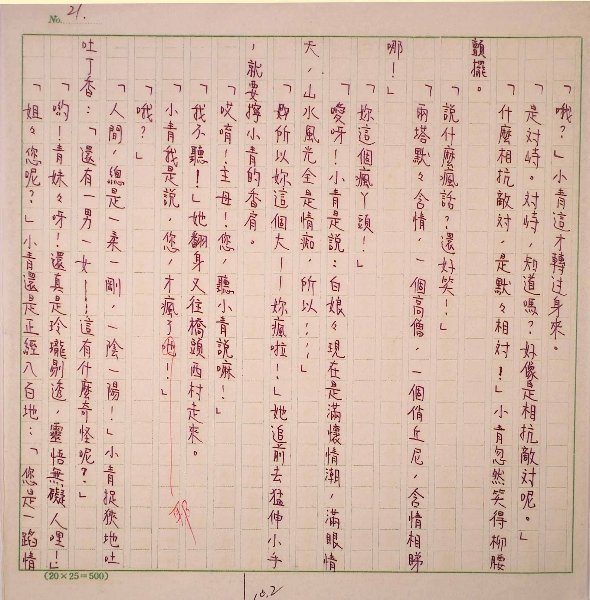 No. 21.
「哦？」小青這才轉过身來。
「是対峙。対峙，知道嗎？好像是相抗敵対呢。」
「什麼相抗敵対，是默々相対！」小青忽然笑得柳腰
顫擺。
「說什麼瘋話？還好笑！」
「兩塔默々含情，一個高僧，一個俏丘尼，含情相睇
哪！」
「妳這個瘋丫頭！」
「愛呀！小青是說：白娘々現在是滿懷情潮，滿眼情
天，山水風光全是情痴，所以……」
「妳所以妳這個大——妳瘋啦！」她追前去猛伸小手
，就要擰小青的香肩。
「哎唷！主母！您，聽小青說嘛！」
「我不聽！」她翻身又往橋頭西村走來。
「小青我是說，您，才瘋了吔！」
耶
「哦？」
「人間，總是一柔一剛，一陰一陽！」小青捉狹地吐
吐丁香：「還有一男一女——這有什麼奇怪呢？」
「喲！青妹々呀！還真是玲瓏剔透，靈悟無礙人哩！」
「姐々您呢？」小青還是正經八百地：「您是一蹈情
(20×25=500)
10.2